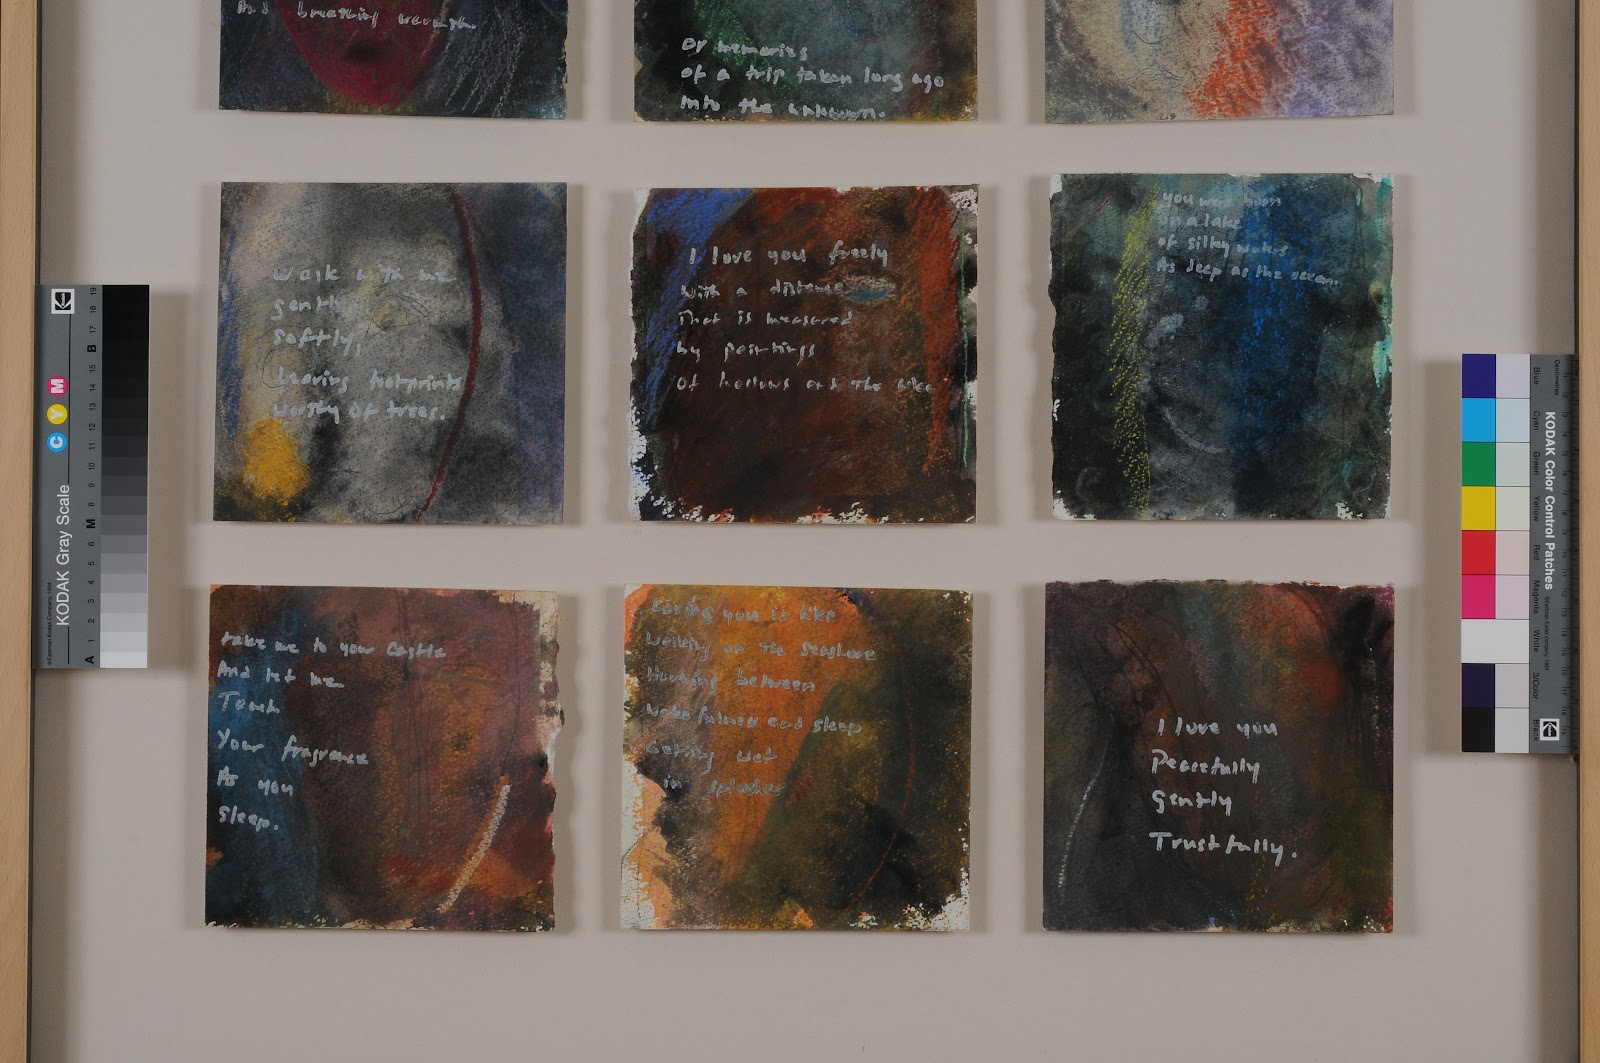 And breathing warmth.
Or memories
of a trip taken long ago
Into the unknown.
Walk with me
gently
softly,
Leaving footprints
worthy of trees.
I love you freely
With a distance
That is measured
by paintings
Of hollows and the
you was born
in a lake
of silky waters
As deep as the ocean.
take me to your castle
And let me
Touch
Your fragrance
As you
Sleep.
Loving you is like
Walking on the seashore
Hovering between
Wakefulness and sleep
Getting wet
in splashes
I love you
Peacefully
Gently
Trustfully.
KODAK Gray Scale
©Eastman Kodak Company, 1994
C Y M
A 1 2 3 4 5 6 M 8 9 10 11 12 13 14 15 B 17 18 19
KODAK Color Control Patches
Centimetres
Blue
Cyan
Green
Yellow
Red
Magenta
White
3/Color
Black